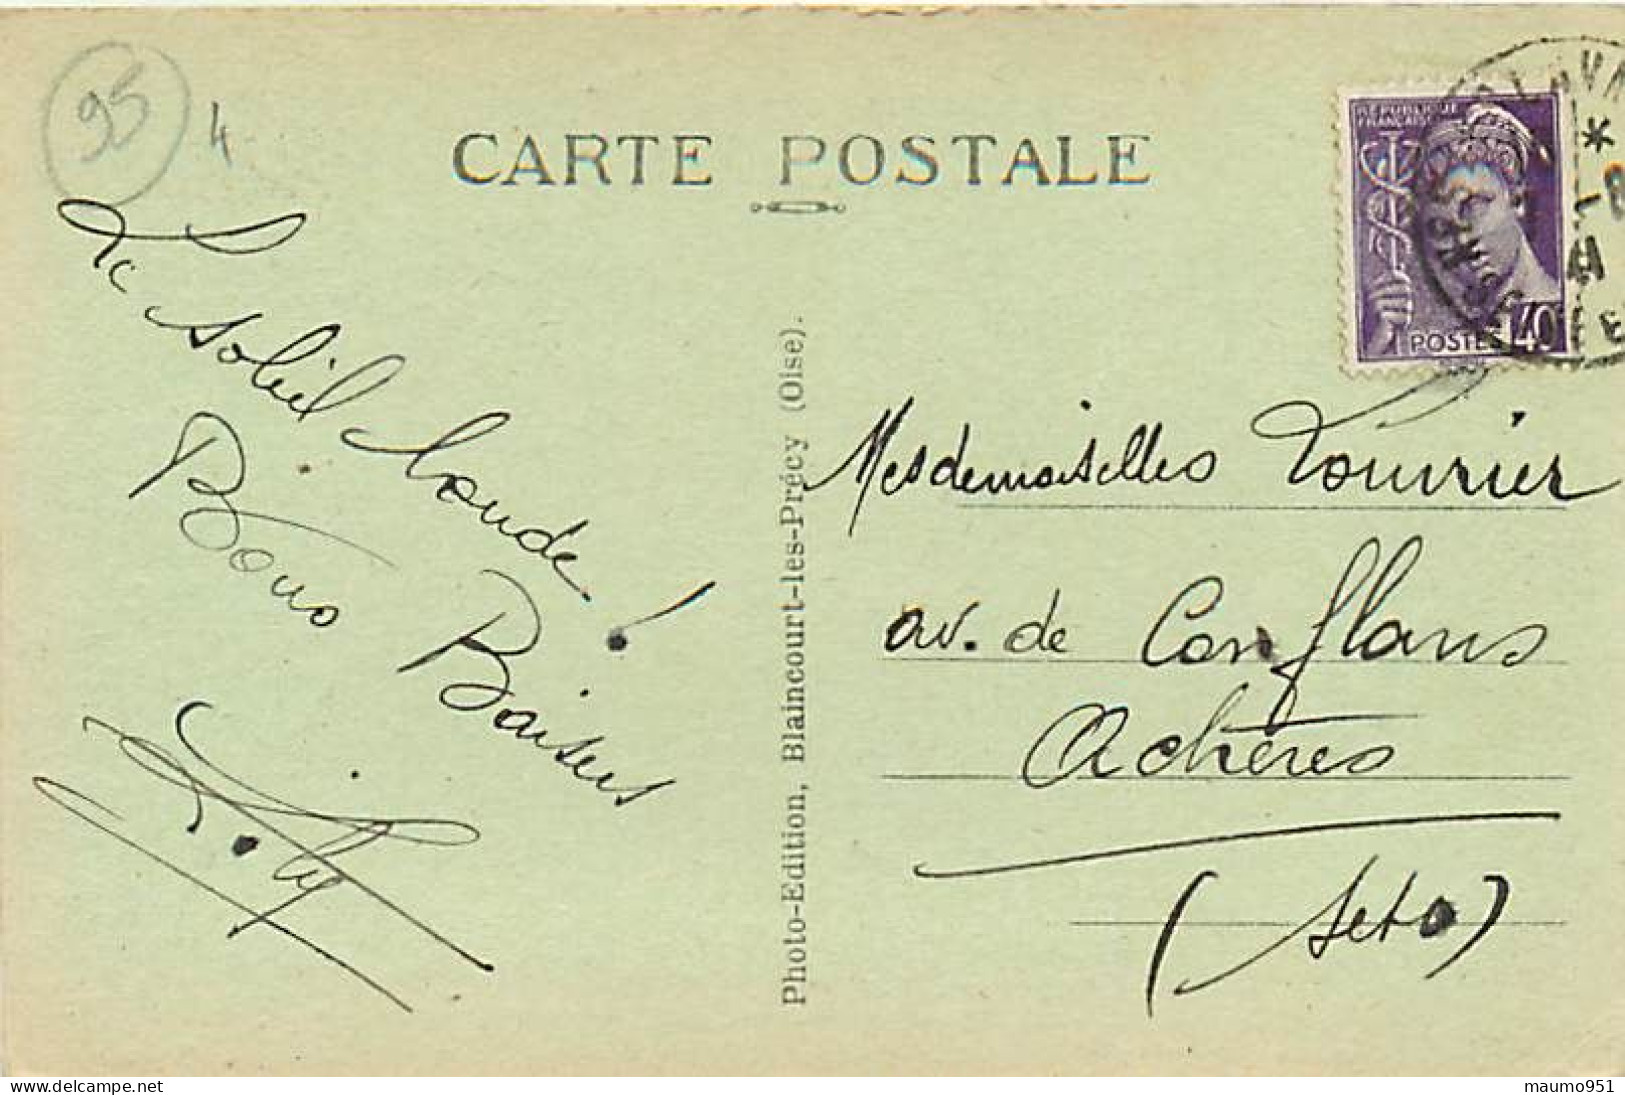 95
4
CARTE POSTALE
RÉPUBLIQUE
FRANÇAISE
POSTES 40
41
Le soleil boude !
Bons Baisers
Photo-Edition, Blaincourt-les-Précy (Oise).
Mesdemoiselles Louvrier
av. de Conflans
Achères
(Seto)
delcampe.net
maumo951